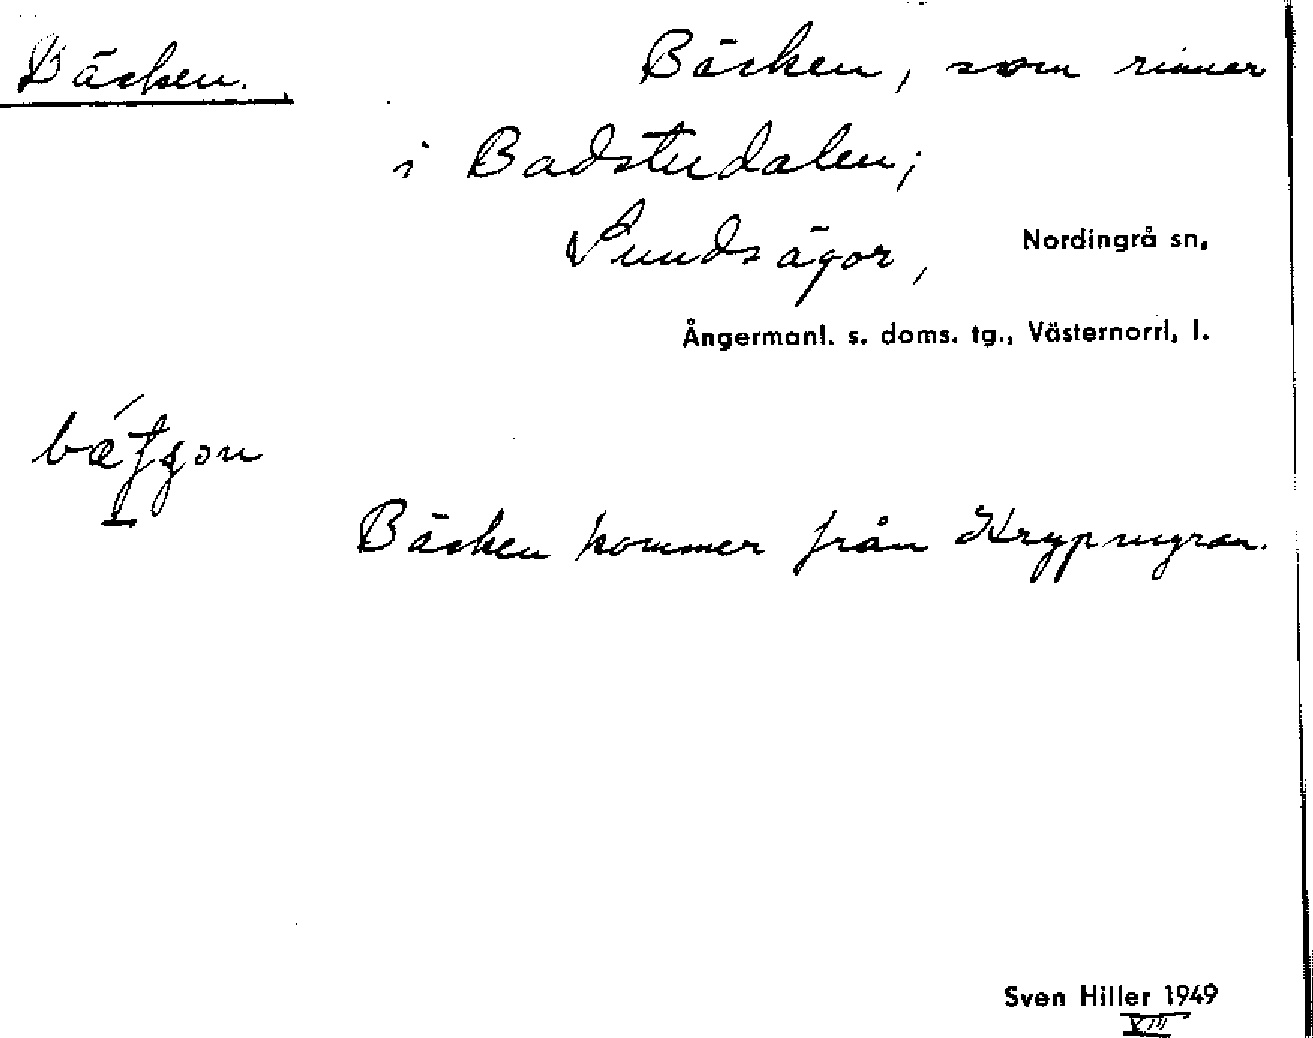 Bäcken.
Bäcken, som rinner
i Badstudalen;
Sundsägor, Nordingrå sn,
Ångermanl. s. doms. tg., Västernorrl, l.
Bäcken kommer från Krypmyran.
Sven Hiller 1949
VIII